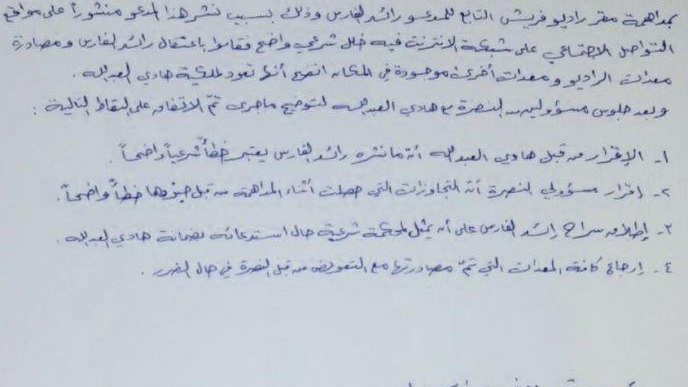 بمداهمة مقر راديو فريش التابع للمدعو رائد الفارس وذلك بسبب نشر هذا المدعو منشوراً على مواقع
التواصل الاجتماعي على شبكة الانترنت فيه خلل شرعي واضح فقاموا باعتقال رائد الفارس و مصادرة
معدات الراديو و معدات أخرى موجودة في المكان اتضح أنها تعود لملكية هادي العبدالله .
و بعد جلوس مسؤولين من النصرة مع هادي العبدالله لتوضيح ماجرى تمّ الاتفاق على النقاط التالية :
١- الإقرار من قبل هادي العبدالله أنّ ما نشره رائد الفارس يعتبر خطأً شرعياً واضحاً .
٢- إقرار مسؤولي النصرة أنّ التجاوزات التي حصلت أثناء المداهمة من قبل خطأً واضحاً .
٣- إطلاق سراح رائد الفارس على أن يمثل لمحكمة شرعية حال استدعائه بضمانة هادي العبدالله .
٤- إرجاع كافة المعدات التي تمّ مصادرتها مع التعويض من قبل النصرة في حال الضرر .